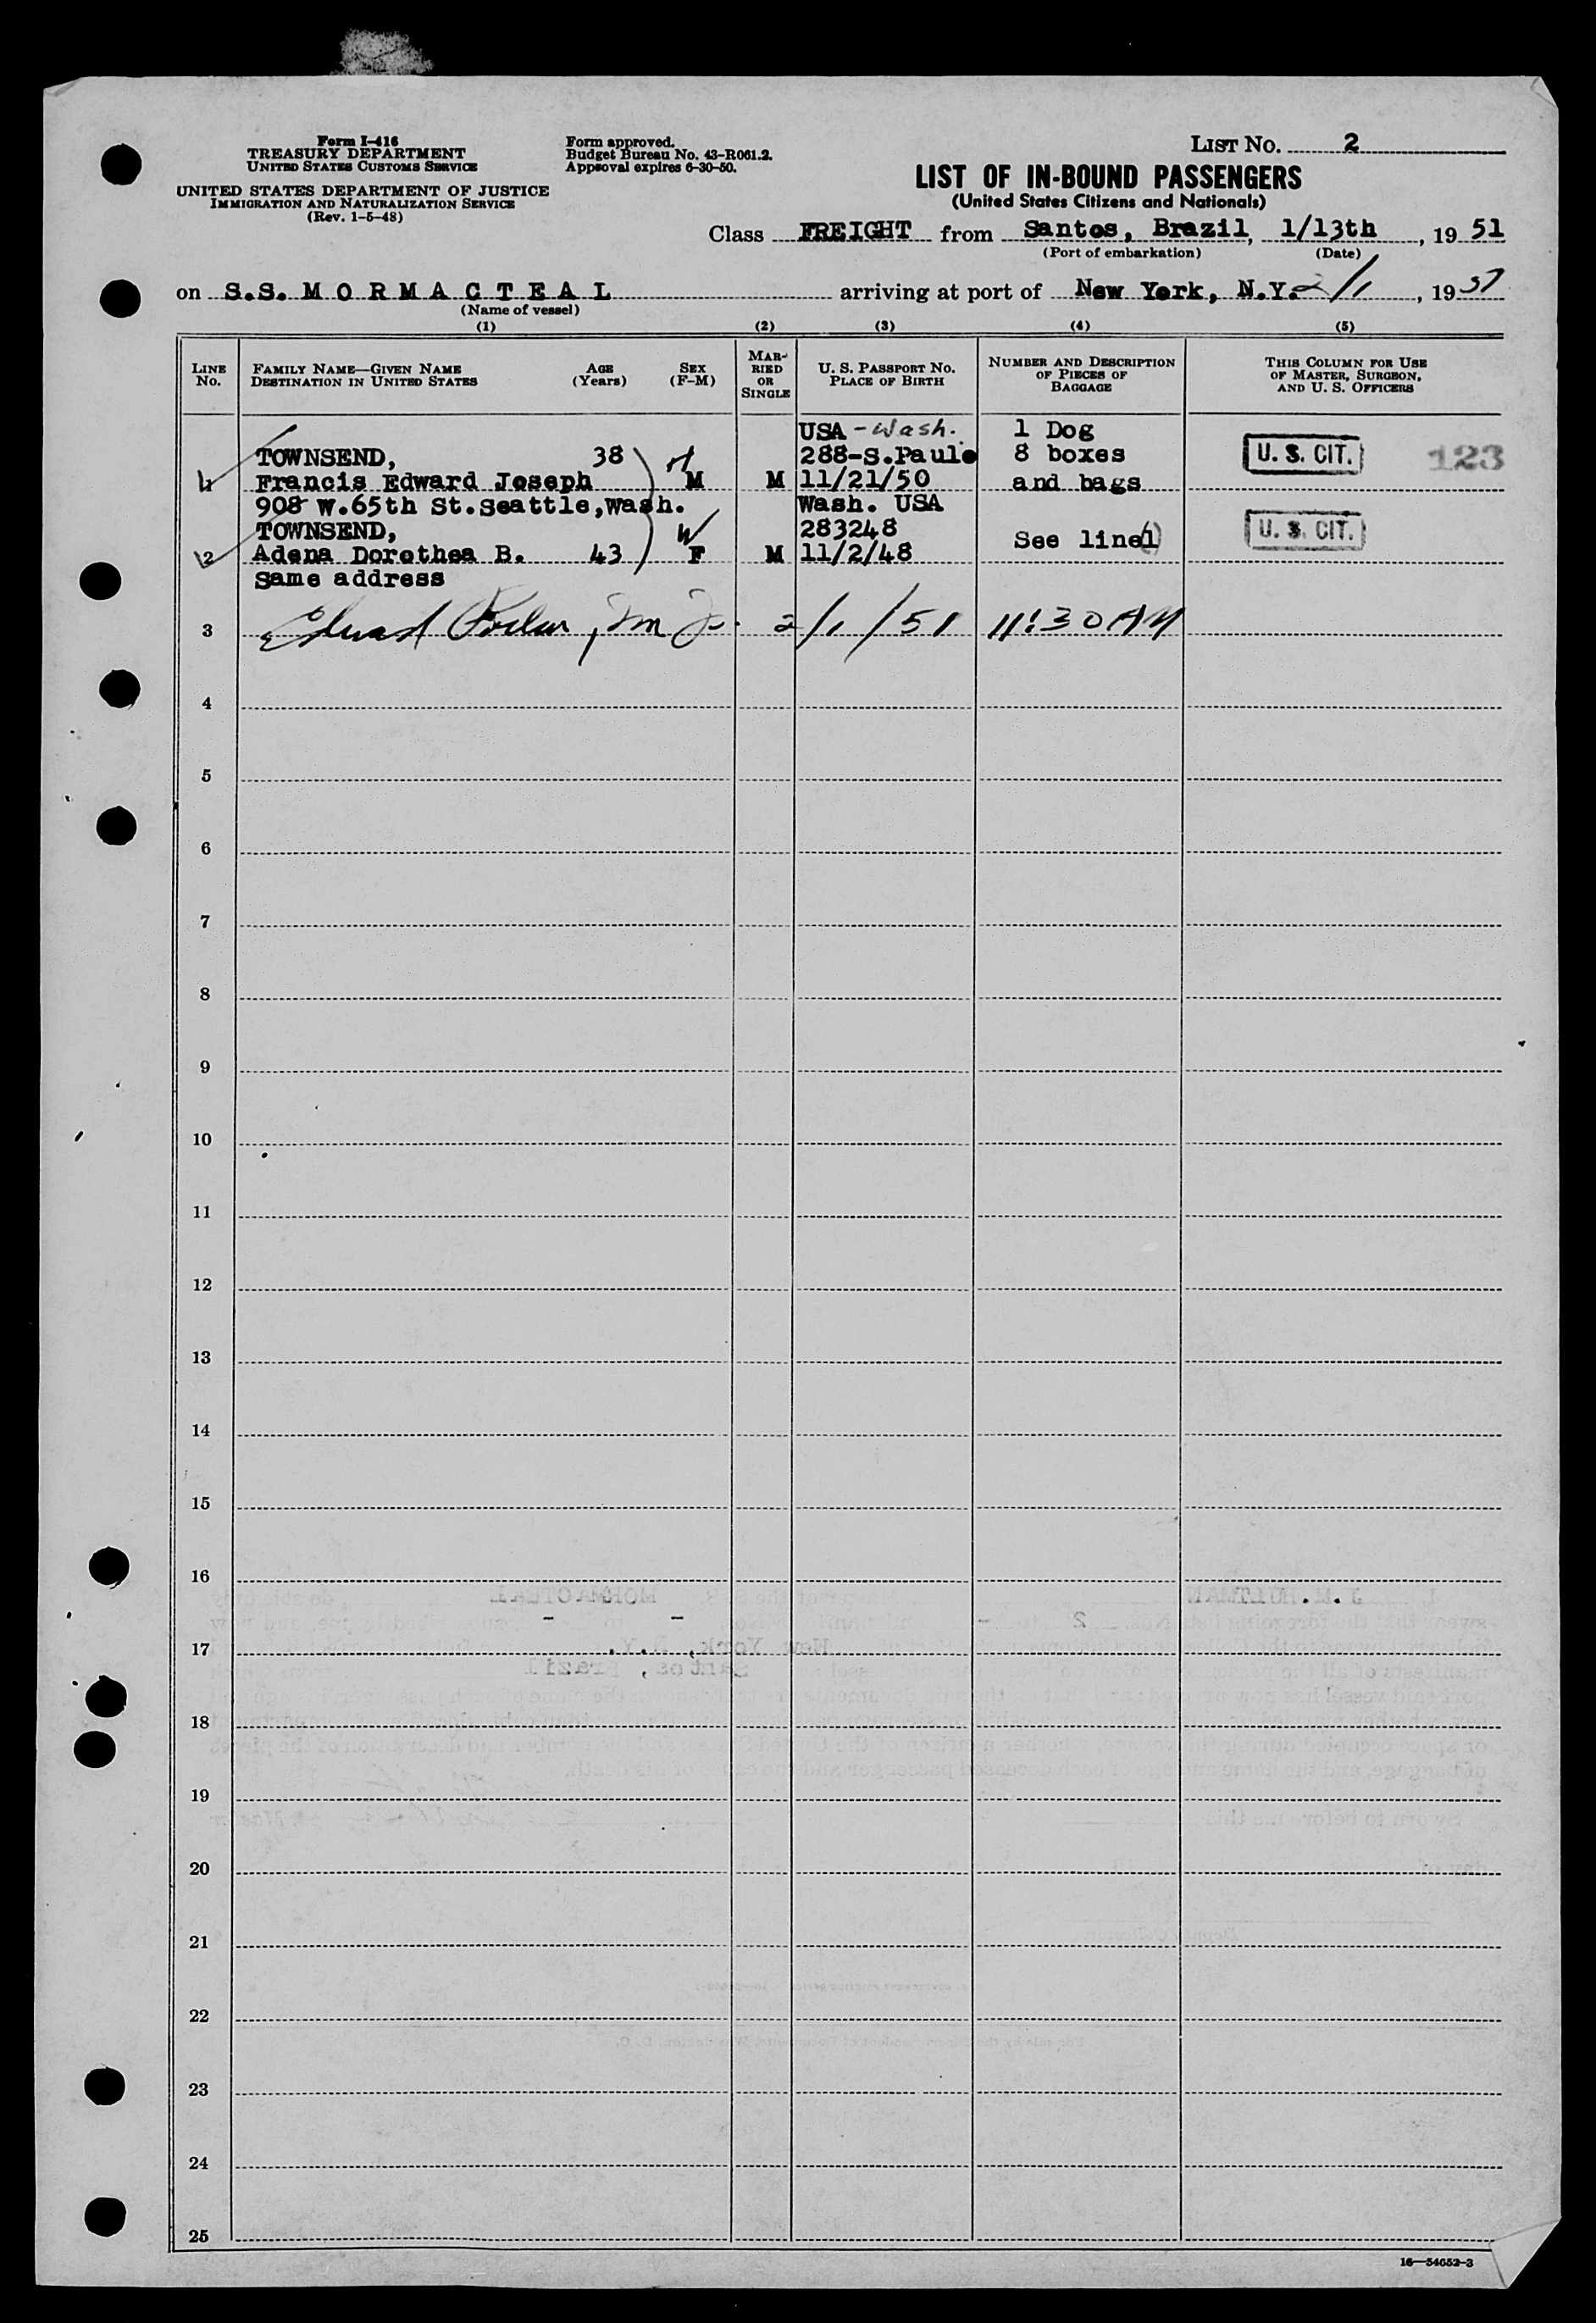 Form I-416
TREASURY DEPARTMENT
UNITED STATES CUSTOMS SERVICE
UNITED STATES DEPARTMENT OF JUSTICE
IMMIGRATION AND NATURALIZATION SERVICE
(Rev. 1-5-48)
Form approved.
Budget Bureau No. 43-R061.2.
Approval expires 6-30-50.
LIST NO. 2
LIST OF IN-BOUND PASSENGERS
(United States Citizens and Nationals)
Class FREIGHT from Santos, Brazil, 1/13th, 19 51
(Port of embarkation) (Date)
on S.S. M O R M A C T E A L arriving at port of New York, N.Y. 2/1, 19 51
(Name of vessel)
(1) (2) (3) (4) (5)
LINE No.
FAMILY NAME—GIVEN NAME
DESTINATION IN UNITED STATES
AGE (Years)
SEX (F-M)
MARRIED OR SINGLE
U. S. PASSPORT NO.
PLACE OF BIRTH
NUMBER AND DESCRIPTION
OF PIECES OF
BAGGAGE
THIS COLUMN FOR USE
OF MASTER, SURGEON,
AND U. S. OFFICERS
USA - Wash. 1 Dog
TOWNSEND, 38 288-S.Paulo 8 boxes U. S. CIT. 123
1 Francis Edward Joseph M M 11/21/50 and bags
908 W.65th St.Seattle,Wash. Wash. USA
TOWNSEND, W 283248 U. S. CIT.
2 Adena Dorothea B. 43 F M 11/2/48 See line 1
Same address
3 Edward 2/1/51 11:30 AM
4
5
6
7
8
9
10
11
12
13
14
15
16
17
18
19
20
21
22
23
24
25
16—54652-3